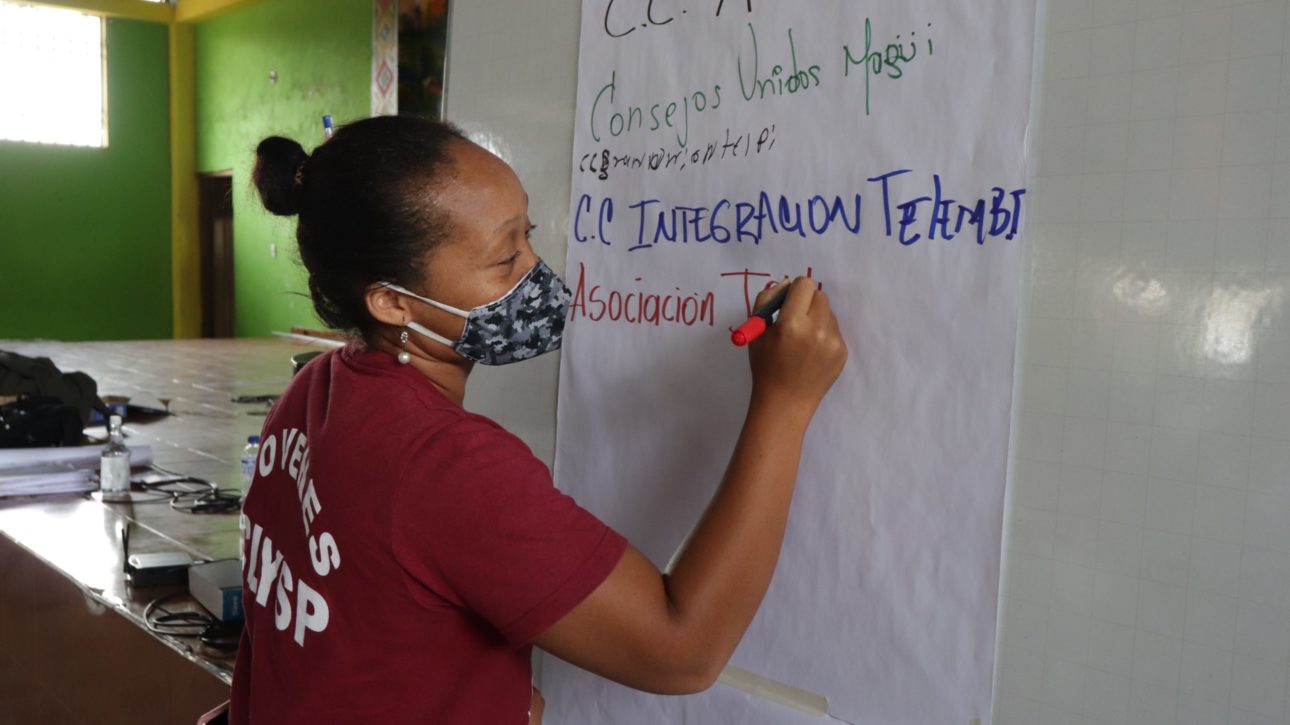 C.C. A
Consejos Unidos Magüi
C.C INTEGRACION TELEMBI
Asociación
OVENES
LYSP